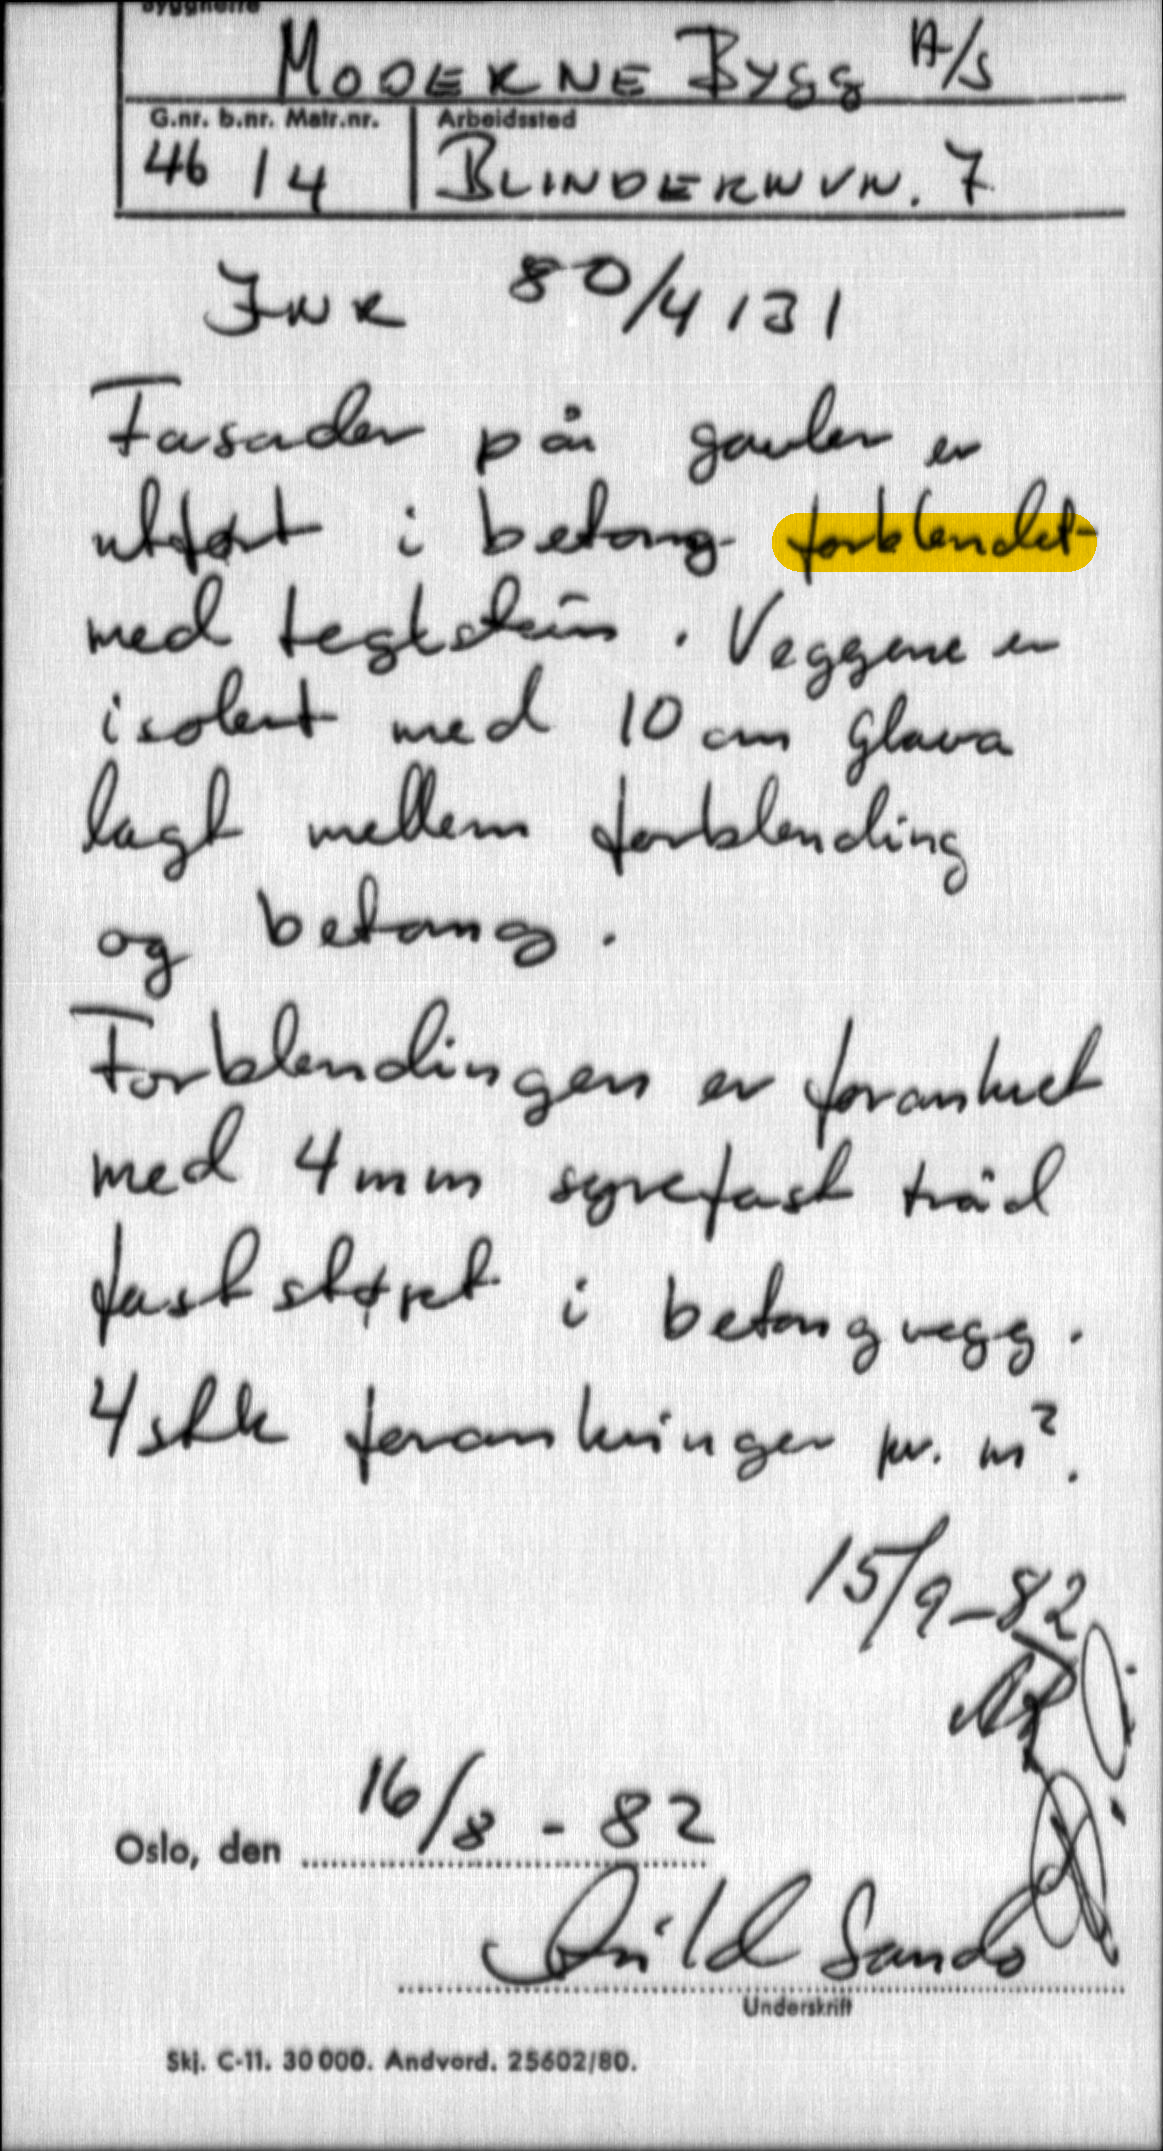 Byggherre
MODERNE BYGG A/S
G.nr. b.nr. Matr.nr. Arbeidssted
46 14 BLINDERNVN. 7
JNR 80/4131
Fasader på gavler er
utført i betong forblendet
med teglstein. Veggene er
isolert med 10 cm Glava
lagt mellem forblending
og betong.
Forblendingen er forankret
med 4 mm syrefast tråd
fast støpt i betongvegg.
4 stk forankringer pr. m².
15/9-82
16/8 - 82
Oslo, den
Underskrift
Skj. C-11. 30 000. Andvord. 25602/80.